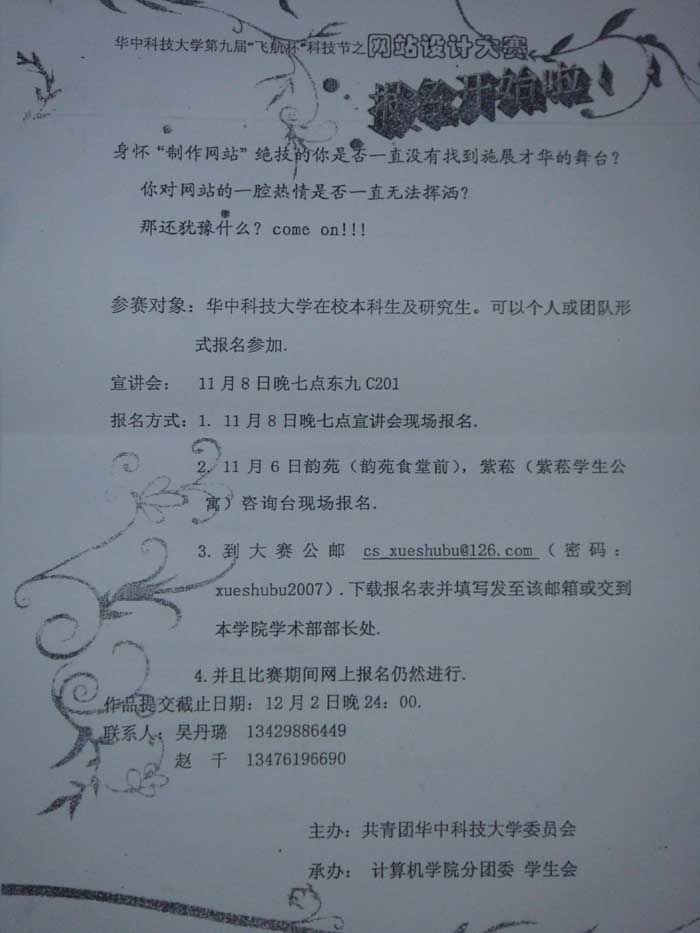 华中科技大学第九届“飞航杯”科技节之网站设计大赛
报名开始啦！
身怀“制作网站”绝技的你是否一直没有找到施展才华的舞台？
你对网站的一腔热情是否一直无法挥洒？
那还犹豫什么？come on!!!
参赛对象：华中科技大学在校本科生及研究生。可以个人或团队形
式报名参加.
宣讲会： 11月8日晚七点东九C201
报名方式：1. 11月8日晚七点宣讲会现场报名.
2. 11月6日韵苑（韵苑食堂前），紫菘（紫菘学生公
寓）咨询台现场报名.
3. 到大赛公邮 cs_xueshubu@126.com（密码：
xueshubu2007）.下载报名表并填写发至该邮箱或交到
本学院学术部部长处.
4.并且比赛期间网上报名仍然进行.
作品提交截止日期：12月2日晚24：00.
联系人：吴丹璐 13429886449
赵 千 13476196690
主办：共青团华中科技大学委员会
承办： 计算机学院分团委 学生会